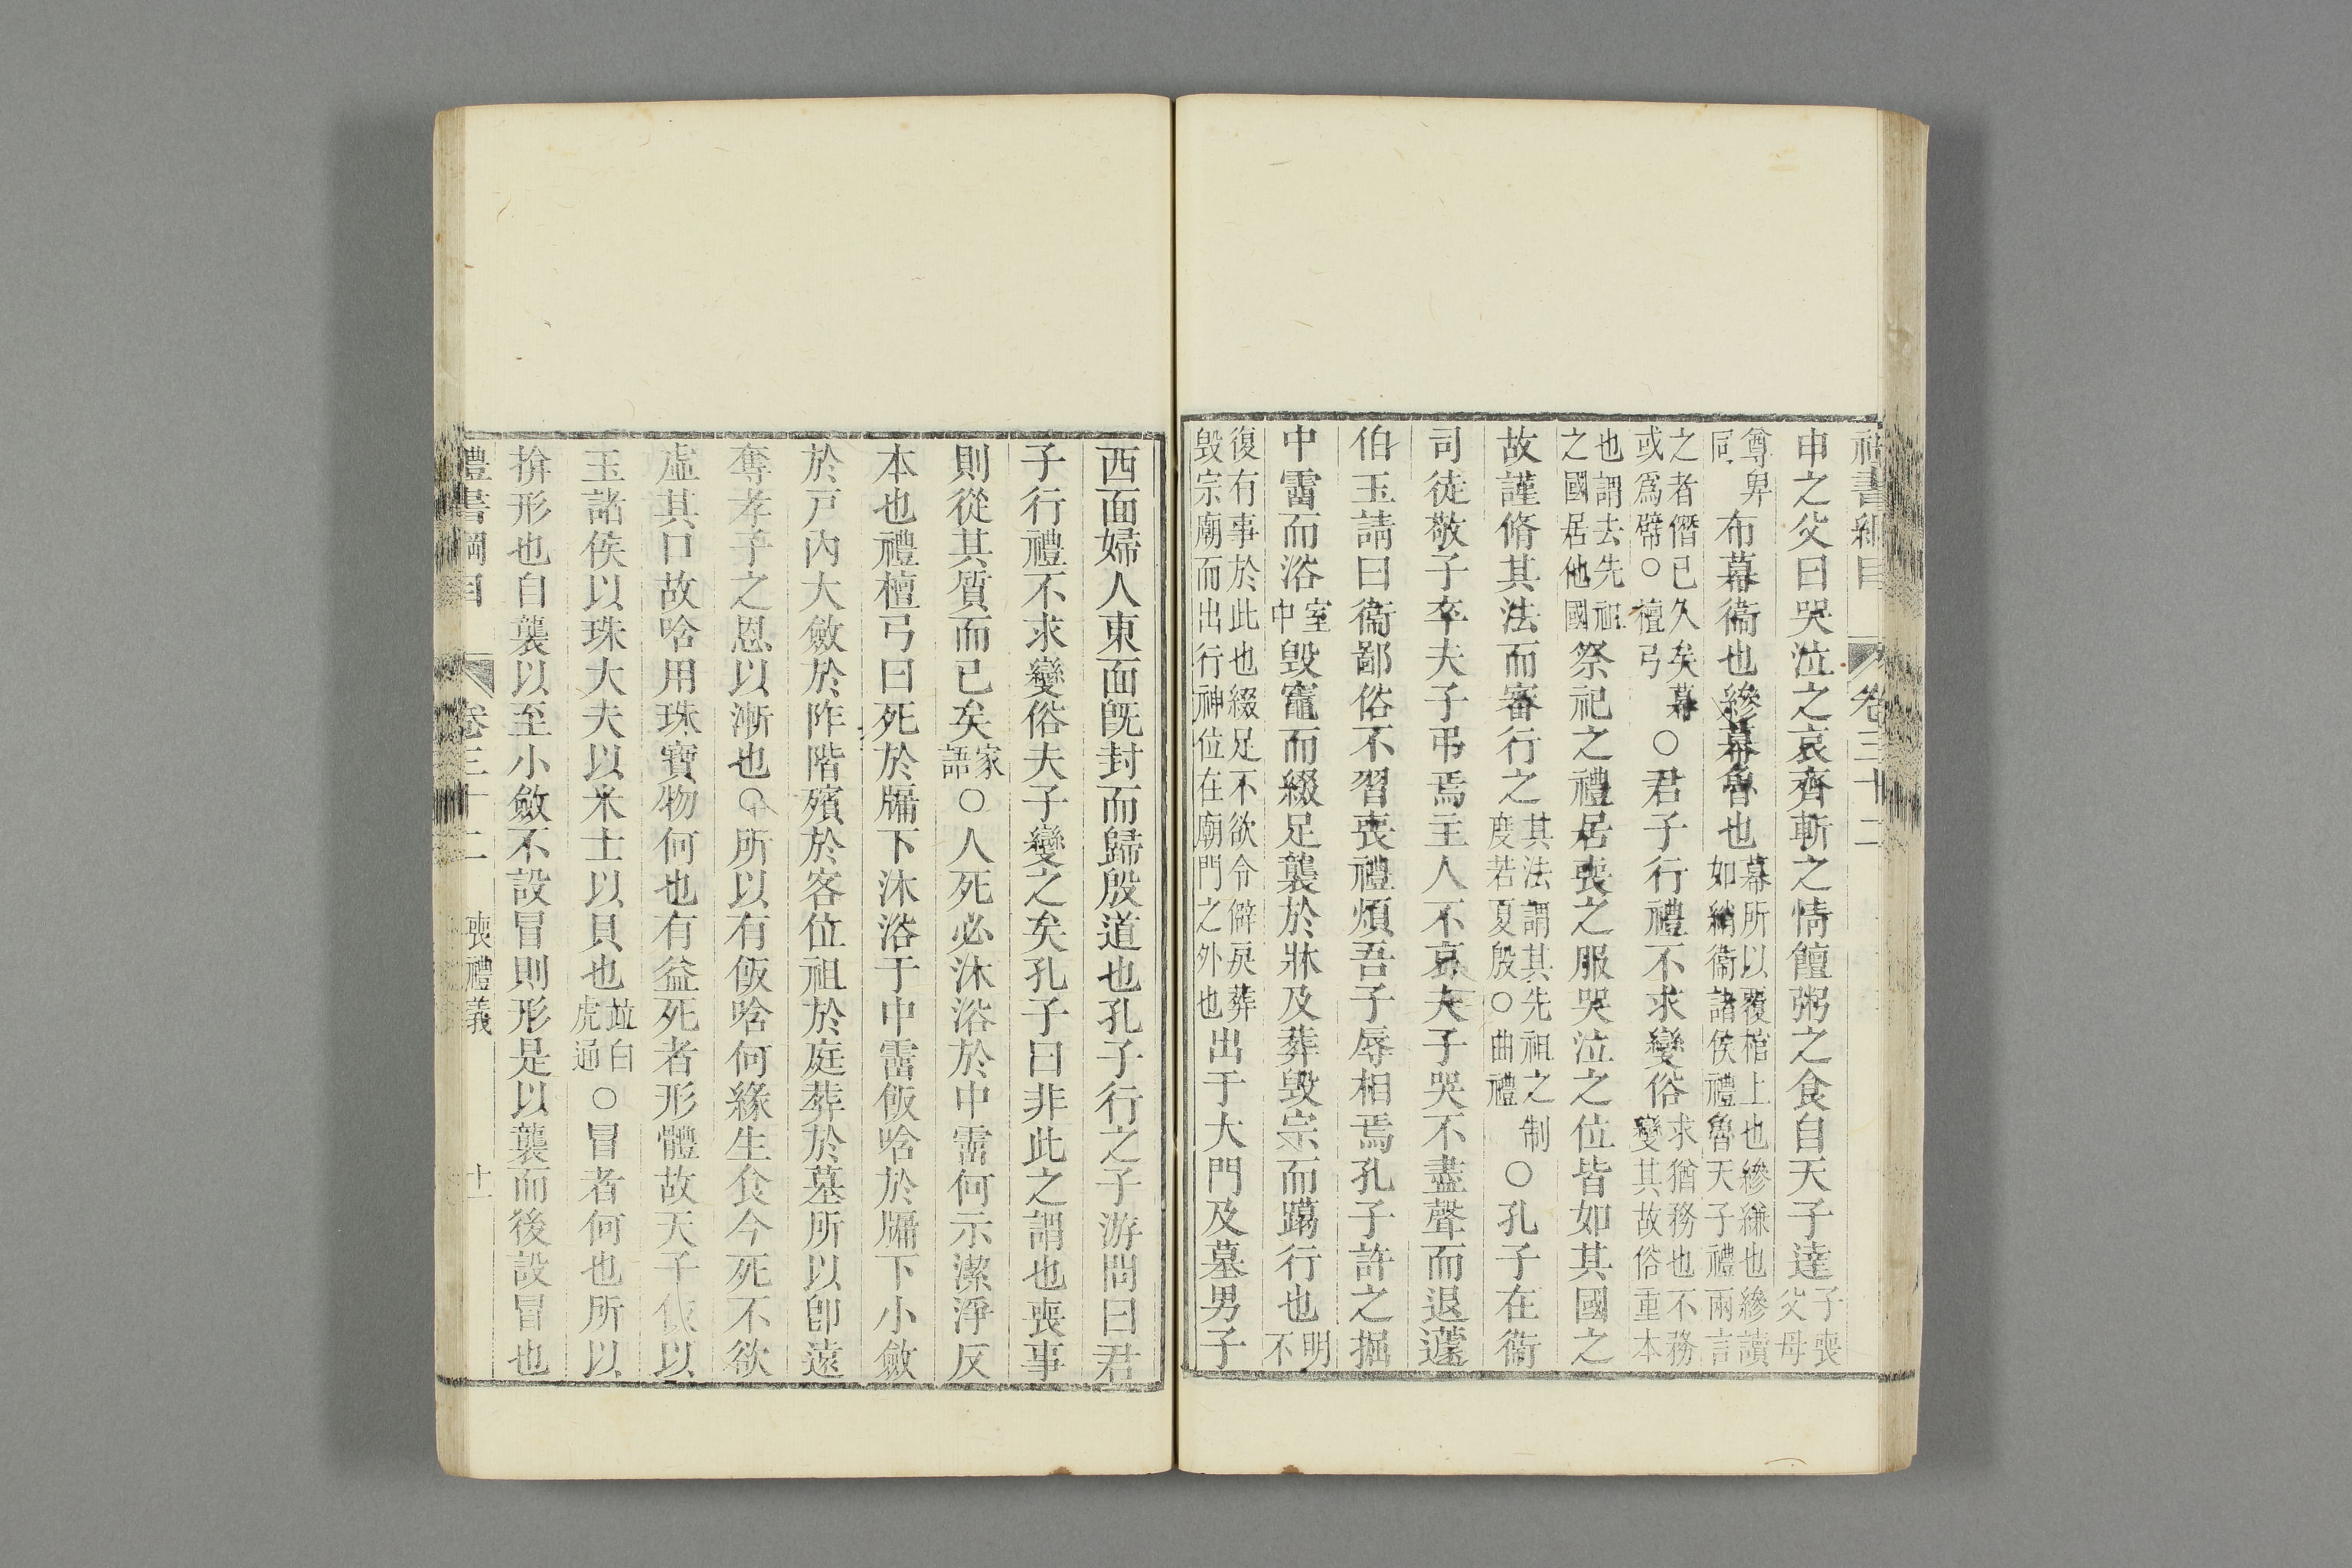 禮書綱目 卷三十二
申之父曰哭泣之哀齊斬之情饘粥之食自天子達子喪父母
尊卑同布幕衞也縿幕魯也幕所以覆棺上也縿縑也縿讀如綃衞諸侯禮魯天子禮兩言
之者僭已久矣幕或爲幦○檀弓○君子行禮不求變俗求猶務也不務變其故俗重本
也謂去先祖之國居他國祭祀之禮居喪之服哭泣之位皆如其國之
故謹脩其法而審行之其法謂其先祖之制度若夏殷○曲禮○孔子在衞
司徒敬子卒夫子弔焉主人不哀夫子哭不盡聲而退蘧
伯玉請曰衞鄙俗不習喪禮煩吾子辱相焉孔子許之掘
中霤而浴室中毁竈而綴足襲於牀及葬毁宗而躐行也明不
復有事於此也綴足不欲令僻戾葬毁宗廟而出行神位在廟門之外也出于大門及墓男子
西面婦人東面旣封而歸殷道也孔子行之子游問曰君
子行禮不求變俗夫子變之矣孔子曰非此之謂也喪事
則從其質而已矣家語○人死必沐浴於中霤何示潔淨反
本也禮檀弓曰死於牖下沐浴于中霤飯唅於牖下小斂
於戸内大斂於阼階殯於客位祖於庭葬於墓所以卽遠
奪孝子之恩以漸也○所以有飯唅何緣生食今死不欲
虛其口故唅用珠寶物何也有益死者形體故天子飯以
玉諸侯以珠大夫以米士以貝也竝白虎通○冒者何也所以
揜形也自襲以至小斂不設冒則形是以襲而後設冒也
禮書綱目 卷三十二 喪禮義 十一